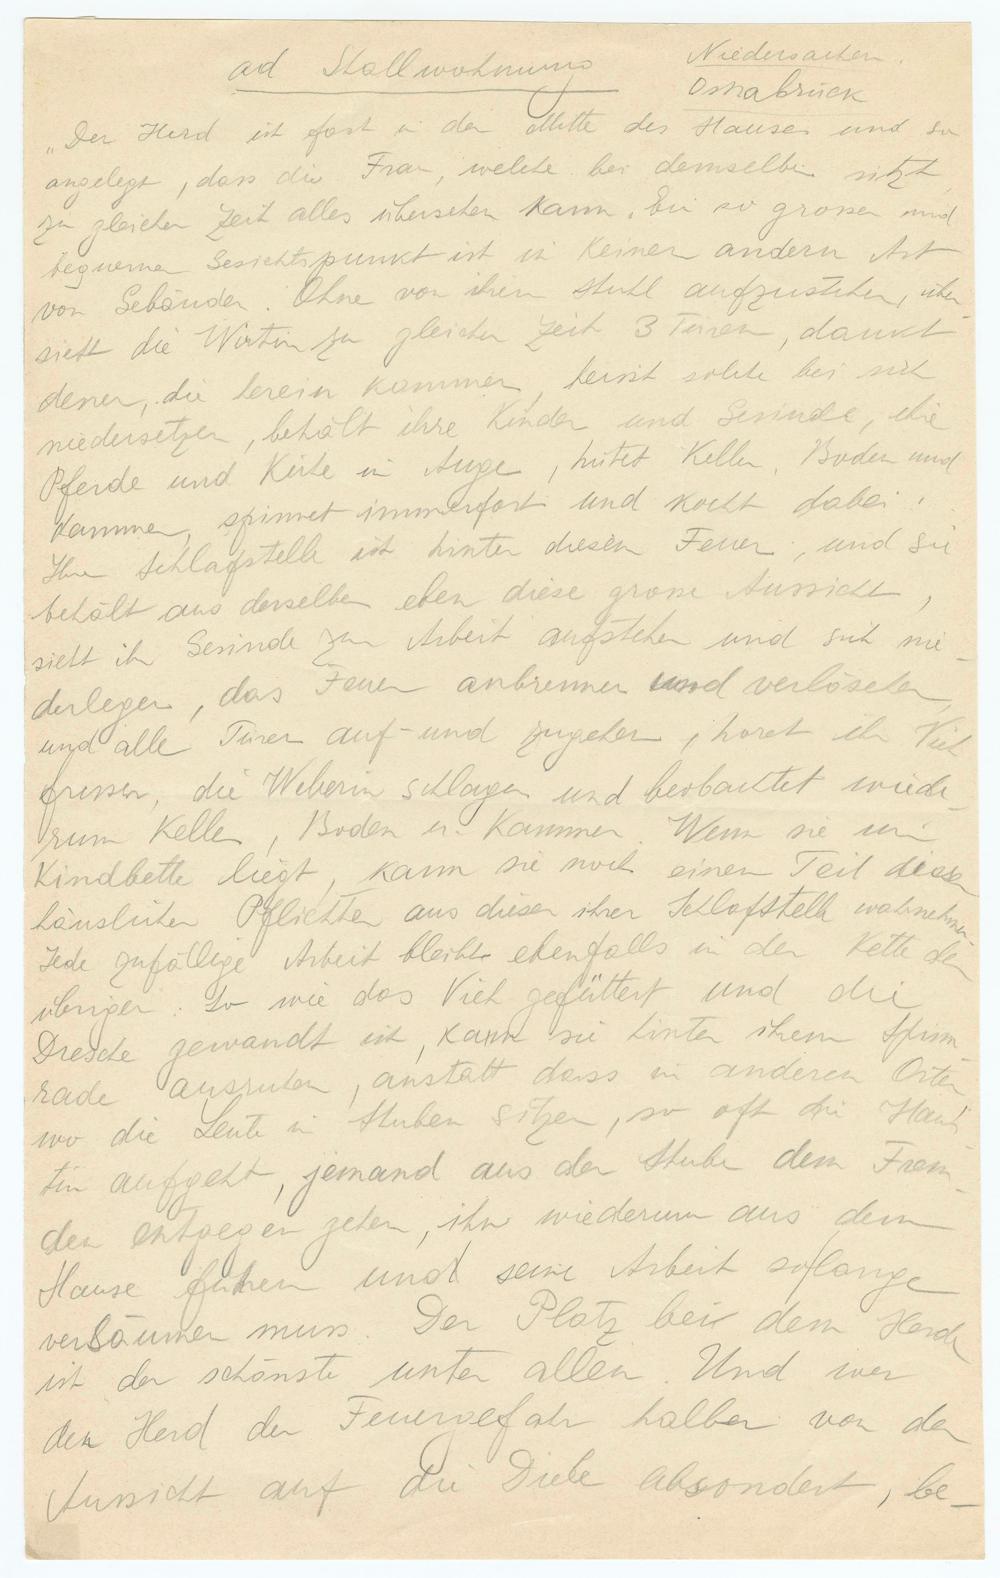 ad Stallwohnung
Niedersachsen.
Osnabrück
„Der Herd ist fast in der Mitte des Hauses und so
angelegt, dass die Frau, welche bei demselben sitzt,
zu gleicher Zeit alles übersehen kann. Ein so grosser und
bequemer Gesichtspunkt ist in keiner andern Art
von Gebäuden. Ohne von ihrem Stuhl aufzustehen, über-
sieht die Wirtin zu gleicher Zeit 3 Türen, dankt
denen, die herein kommen, heisst solche bei sich
niedersetzen, behält ihre Kinder und Gesinde, ihre
Pferde und Kühe im Auge, hütet Keller, Boden und
Kammer, spinnet immerfort und kocht dabei.
Ihre Schlafstelle ist hinter diesem Feuer, und sie
behält aus derselben eben diese grosse Aussicht,
sieht ihr Gesinde zur Arbeit aufstehen und sich nie-
derlegen, das Feuer anbrennen und verlöschen,
und alle Türen auf- und zugehen, höret ihr Vieh
fressen, die Weberin schlagen und beobachtet wiede-
rum Keller, Boden u. Kammer. Wenn sie im
Kindbette liegt, kann sie noch einen Teil dieser
häuslichen Pflichten aus dieser ihrer Schlafstelle wahrnehmen.
Jede zufällige Arbeit bleibt ebenfalls in der Kette der
übrigen. So wie das Vieh gefüttert und die
Dresche gewandt ist, kann sie hinter ihrem Spinn-
rade ausruhen, anstatt dass in anderen Orten
wo die Leute in Stuben sitzen, so oft die Haus-
tür aufgeht, jemand aus der Stube dem Frem-
den entgegen gehen, ihn wiederum aus dem
Hause führen und seine Arbeit solange
versäumen muss. Der Platz bei dem Herde
ist der schönste unter allen. Und wer
den Herd der Feuergefahr halber von der
Aussicht auf die Diele absondert, be-